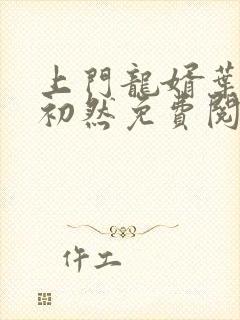 上門龍婿葉
初然免費閱
仵工